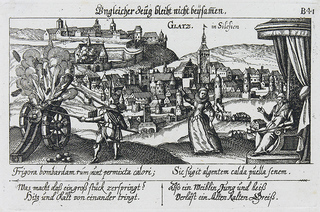 Ungleicher Zeug bleibt nicht beysamen.
B41
GLATZ. in Silesien
Frigora bombardam rumpunt permixta calori;
Sic fugit algentem calda puella senem.
Was macht daß ein groß stück zerspringt?
Hitz und Kält von einander tringt.
Also ein Weiblin Jung und heiß
Verlest ein Alten Kalten Greiß.